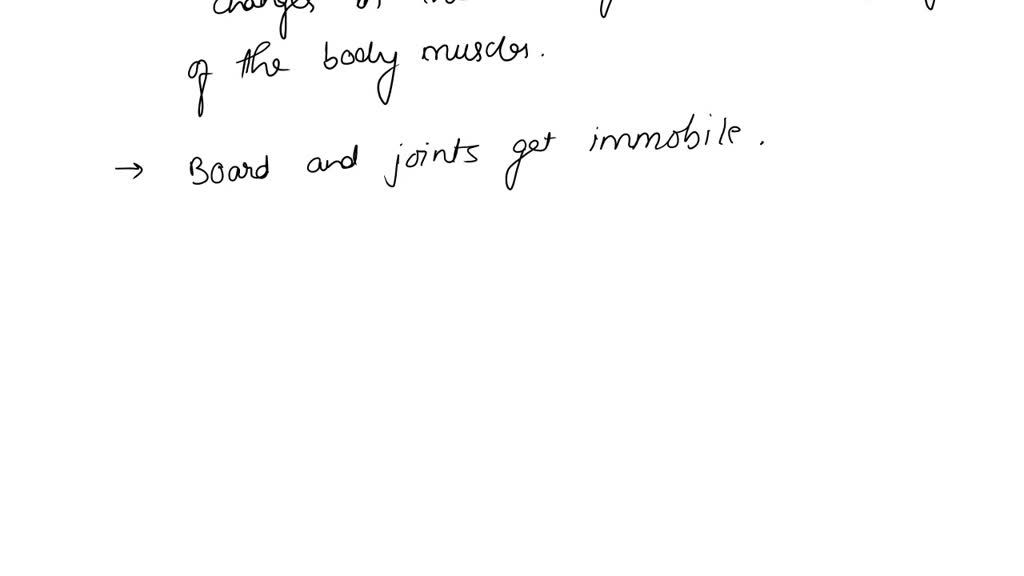 changes
of the body muscles.
→ Board and joints get immobile.